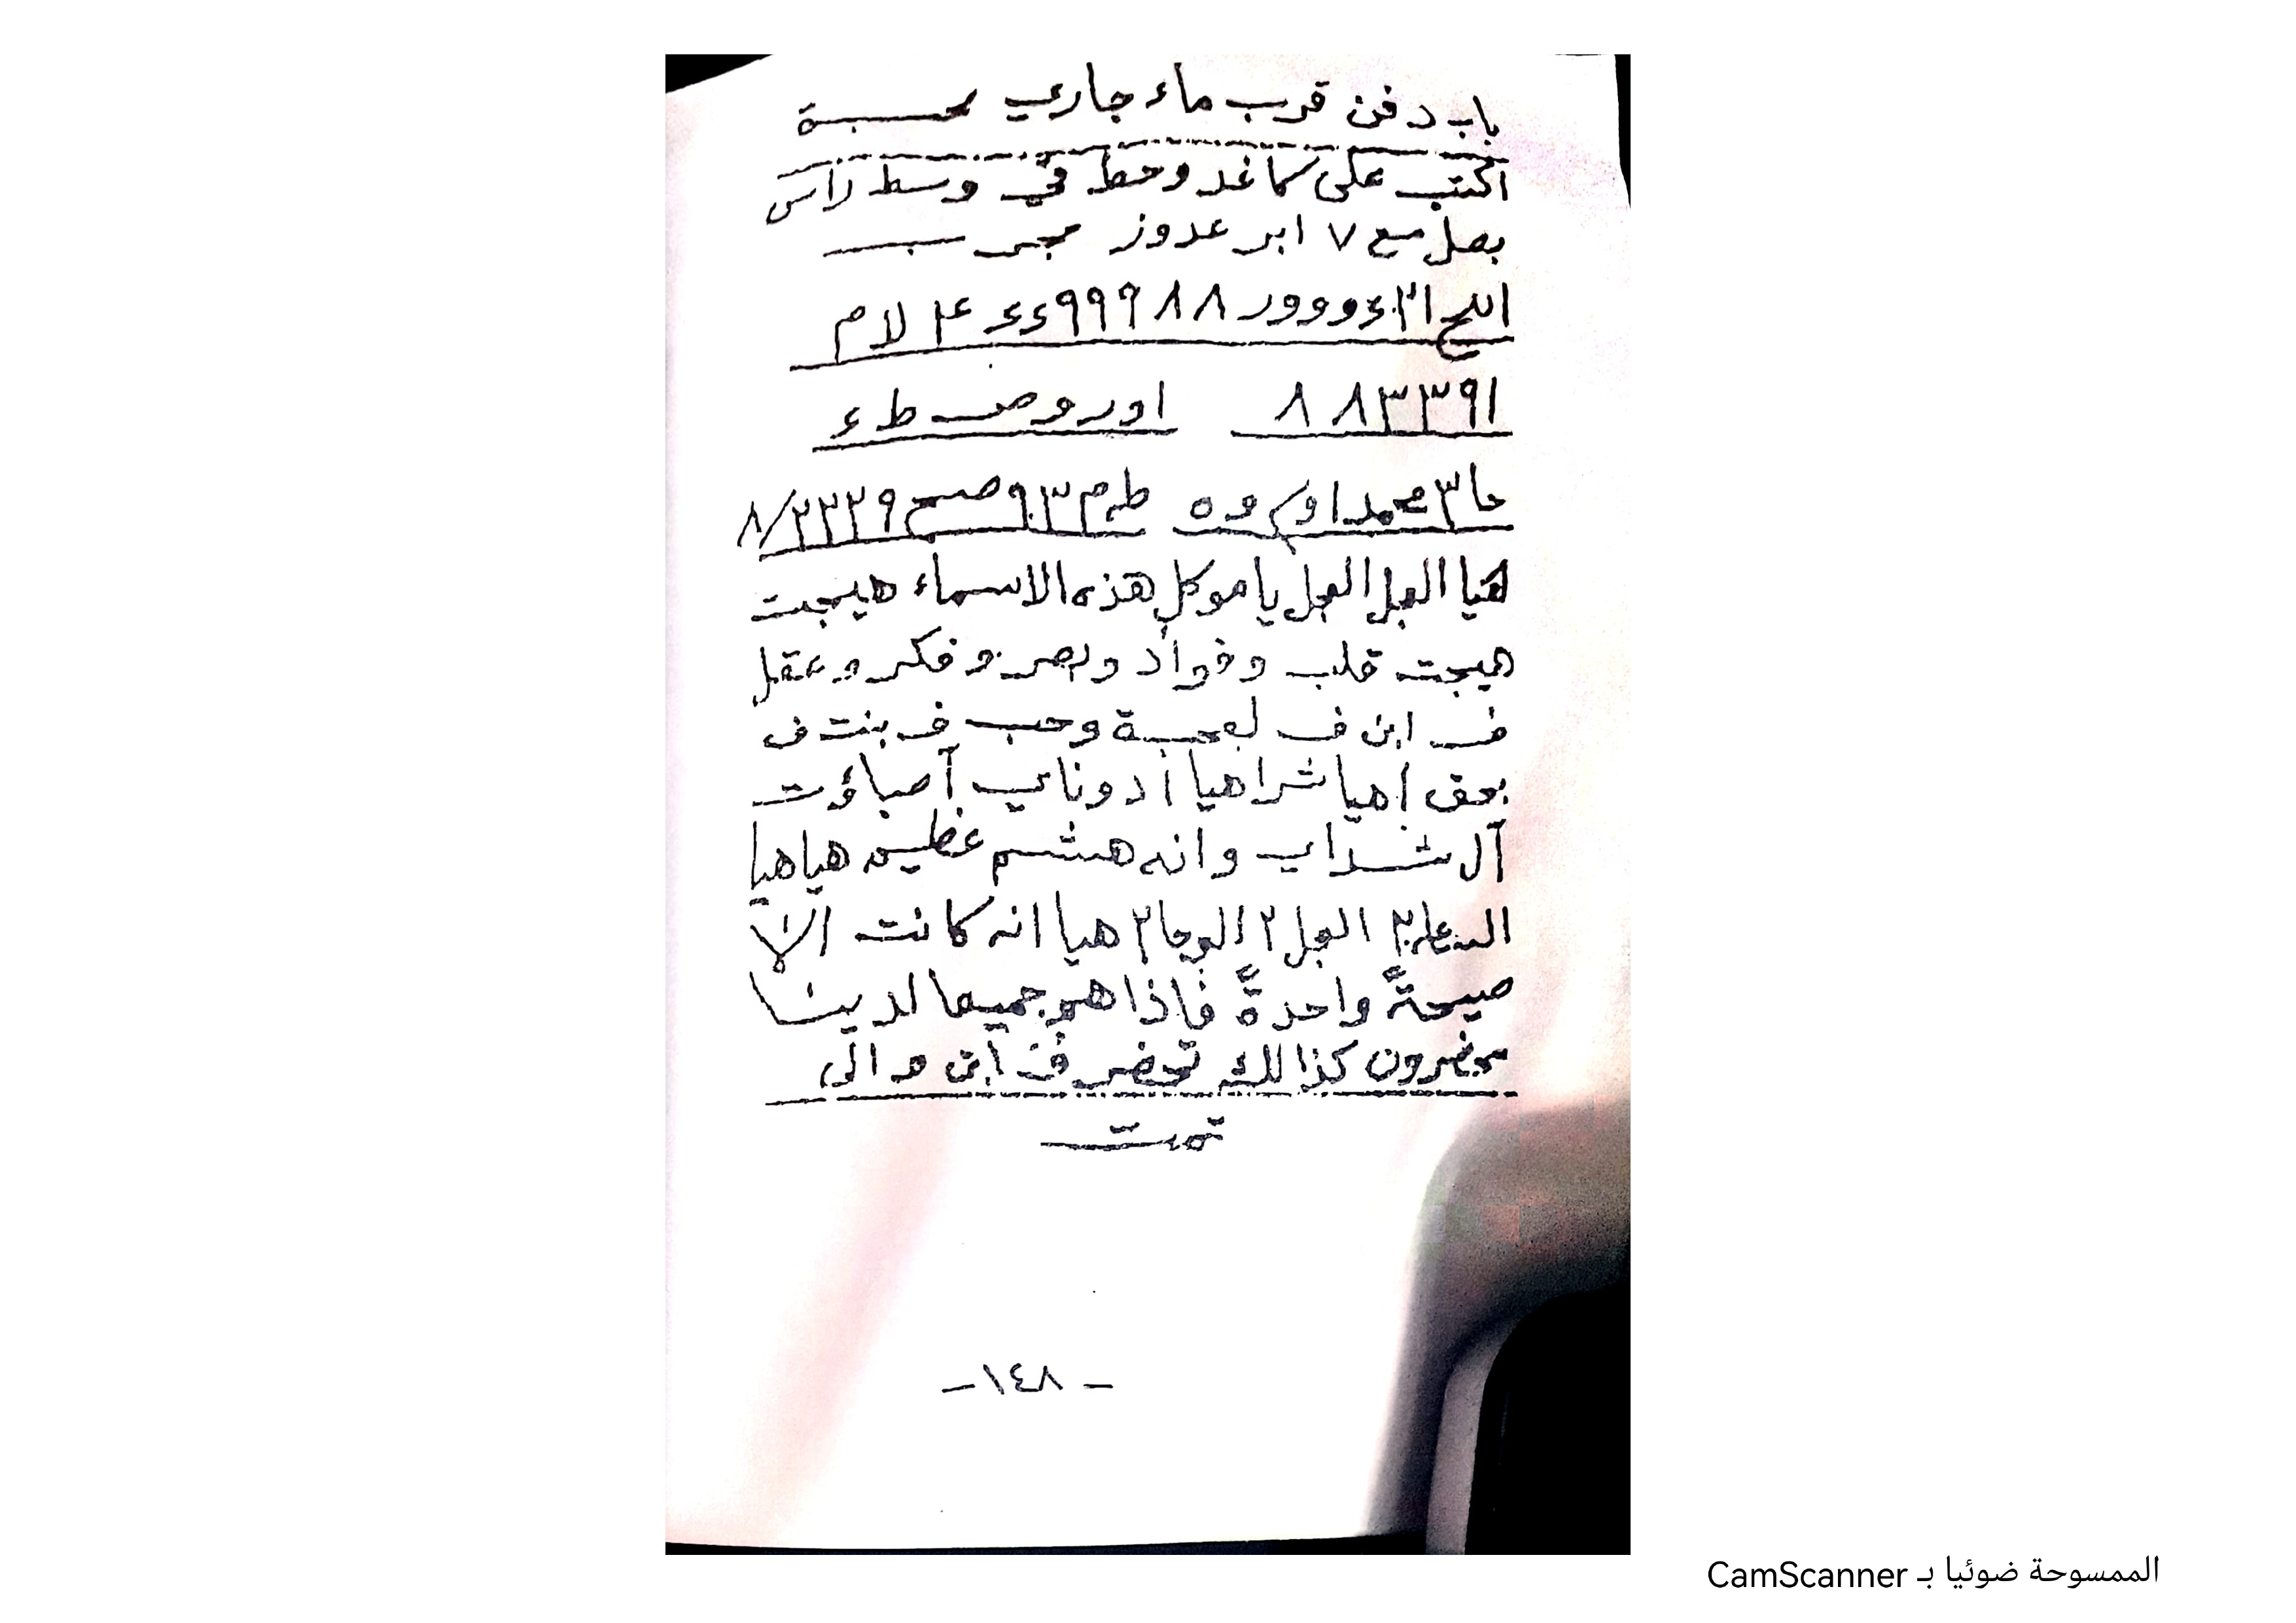 باب دفن قرب ماء جاري محبة
اكتب على كاغد وحط في وسط راس
بصل مع ٧ ابر عدوز مجرب
٨٨ ٩٩٩ لام
١٩٣٣٨ ٨ اور وص ط ء
حا ٣ محمد او وه طم ٩٣ صح ٩٣٣٢/٨
هيا العجل العجل يا موكل هذه الاسماء هيجت
هيجت قلب وفواد وبصر وفكر وعقل
ف ابن ف لمحبة وحب ف بنت ف
بحق اهيا شراهيا أدوناي آصباؤت
آل شداي وانه هشسم عظيم هيا هيا
العجل ٢ الوحا ٢ هيا انه كانت الا
صيحةً واحدةً فاذا هم جميعا لدينا
محضرون كذالك تحضر ف ابن الى
تمت
- ١٤٨ -
الممسوحة ضوئيا بـ CamScanner